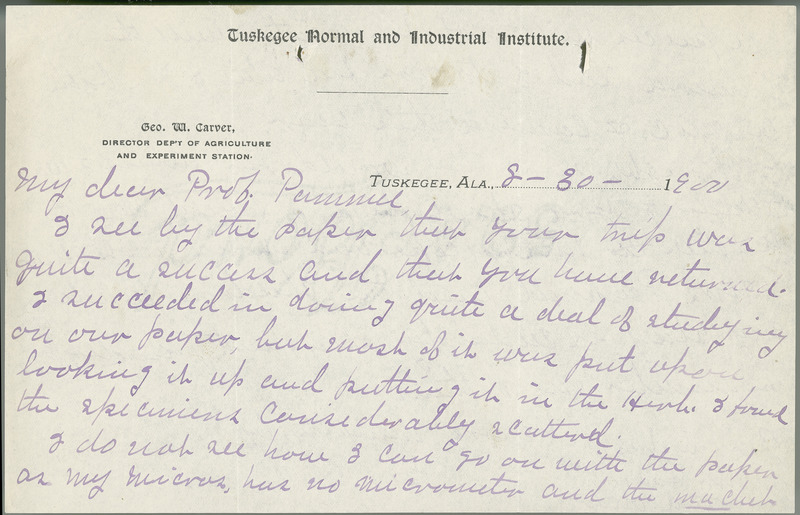 Tuskegee Normal and Industrial Institute.
Geo. W. Carver,
DIRECTOR DEP'T OF AGRICULTURE
AND EXPERIMENT STATION.
TUSKEGEE, ALA., 8-30- 1900
My dear Prof. Pammel,
I see by the paper that your trip was
quite a success and that you have returned.
I succeeded in doing quite a deal of studying
on our paper, but most of it was put upon
looking it up and putting it in the Herb. I found
the specimens considerably scattered.
I do not see how I can go on with the paper
as my micros, has no micrometer and the